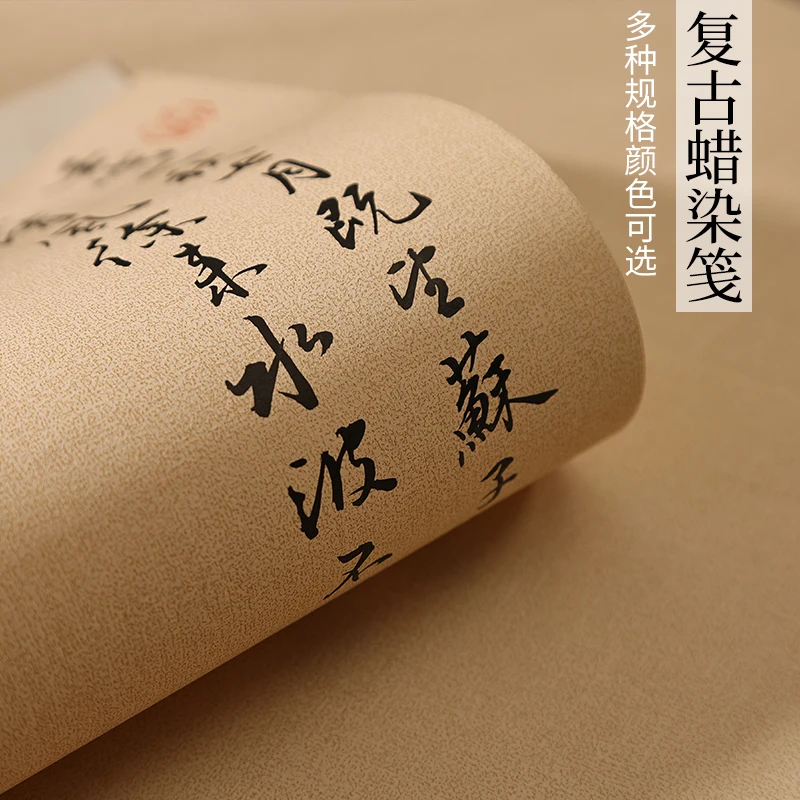 复古蜡染笺
多种规格颜色可选
七月既望蘇子
風徐来水波不